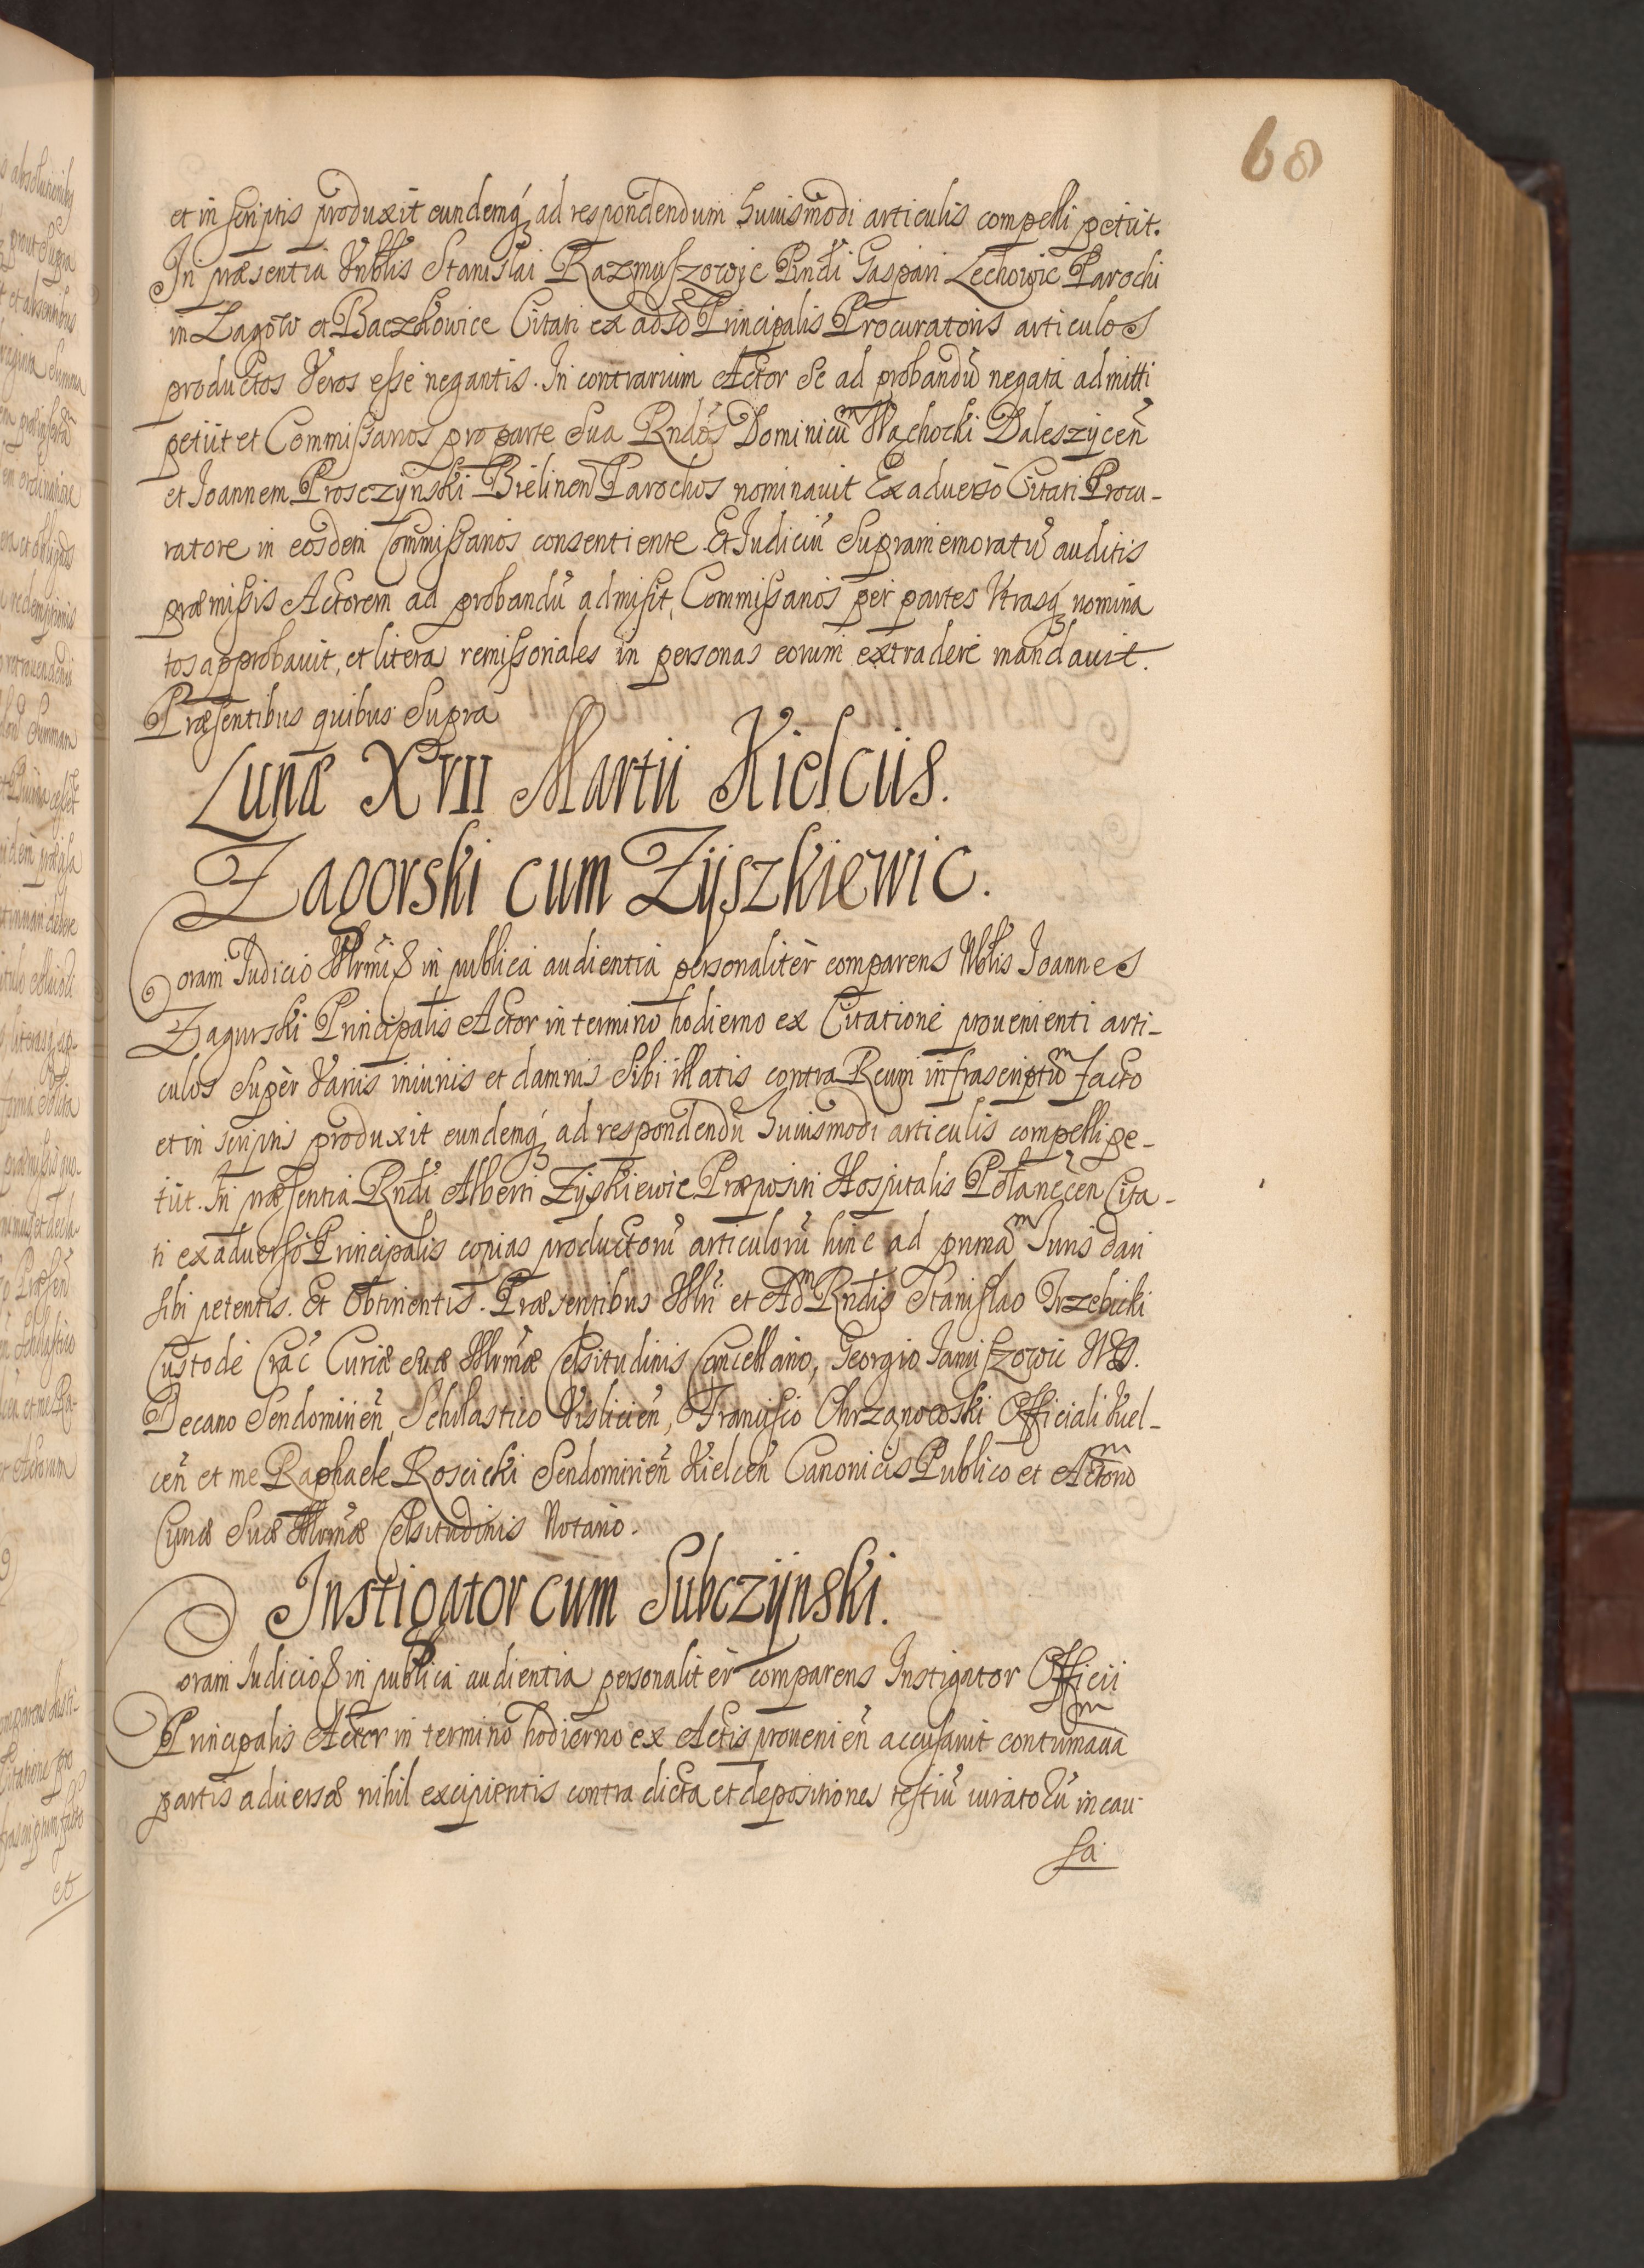 60
et in scriptis produxit eundemq; ad respondendum huiusmodi articulis compelli petiit.
In præsentia Vnblis Stanislai Razmuszowic Rndi Gaspari Lechowic Parochi
in Łagow et Baczkowice Citati ex adso Principalis Procuratoris articulos
productos Veros esse negantis. In contrarium Actor se ad probandũ negata admitti
petiit et Commissarios pro parte sua Rndos Dominicũ Wąchocki Daleszyceñ
et Ioannem Prosczynski Bielinen Parochos nominauit Ex aduerso Citati Procu-
ratore in eosdem Commissarios consentiente. Et Iudiciũ Supramemoratũ auditis
præmissis Actorem ad probandũ admisit, Commissarios per partes Vtrasq; nomina
tos approbauit, et litera remissoriales in personas eorum extradere mandauit.
Præsentibus quibus supra
Lunæ XVII Martii Kielciis.
Zagorski cum Zyszkiewic.
Coram Iudicio Illrmi & in publica audientia personalitèr comparens Nblis Ioannes
Zagurski Principalis Actor in termino hodierno ex Citatione prouenienti arti-
culos supèr Variis iniuriis et damnis sibi illatis contra Reum infrascriptũ facto
et in scriptis produxit eundemq; ad respondendũ huiusmodi articulis compelli pe-
tiit. In præsentia Rndi Alberti Zyskiewic Præpositi Hospitalis Połaneceñ Cita-
ti ex aduerso Principalis copias productorũ articulorũ hinc ad primã Iuris dari
sibi petentis. Et Obtinentis. Præsentibus Illri et Adm Rndis Stanislao Trzebicki
Custode Crac Curiæ suæ Illrmæ Celsitudinis Cancellario, Georgio Ianuszowic
Decano Sendomirieñ, Scholastico Visliceñ, Francisco Chrząnowski Officiali Kiel-
ceñ et me Raphaele Roscicki Sendomirieñ Kielceñ Canonicis Publico et Actorũ
Curiæ Suæ Illrmæ Celsitudinis Notario.
Instigator cum Subczynski.
Coram Iudicio & in publica audientia personalitèr comparens Instigator Officii
Principalis Actor in termino hodierno ex Actis prouenieñ accusauit contumaciã
partis aduersæ nihil excipientis contra dicta et depositiones testiũ iuratorũ in cau
sa